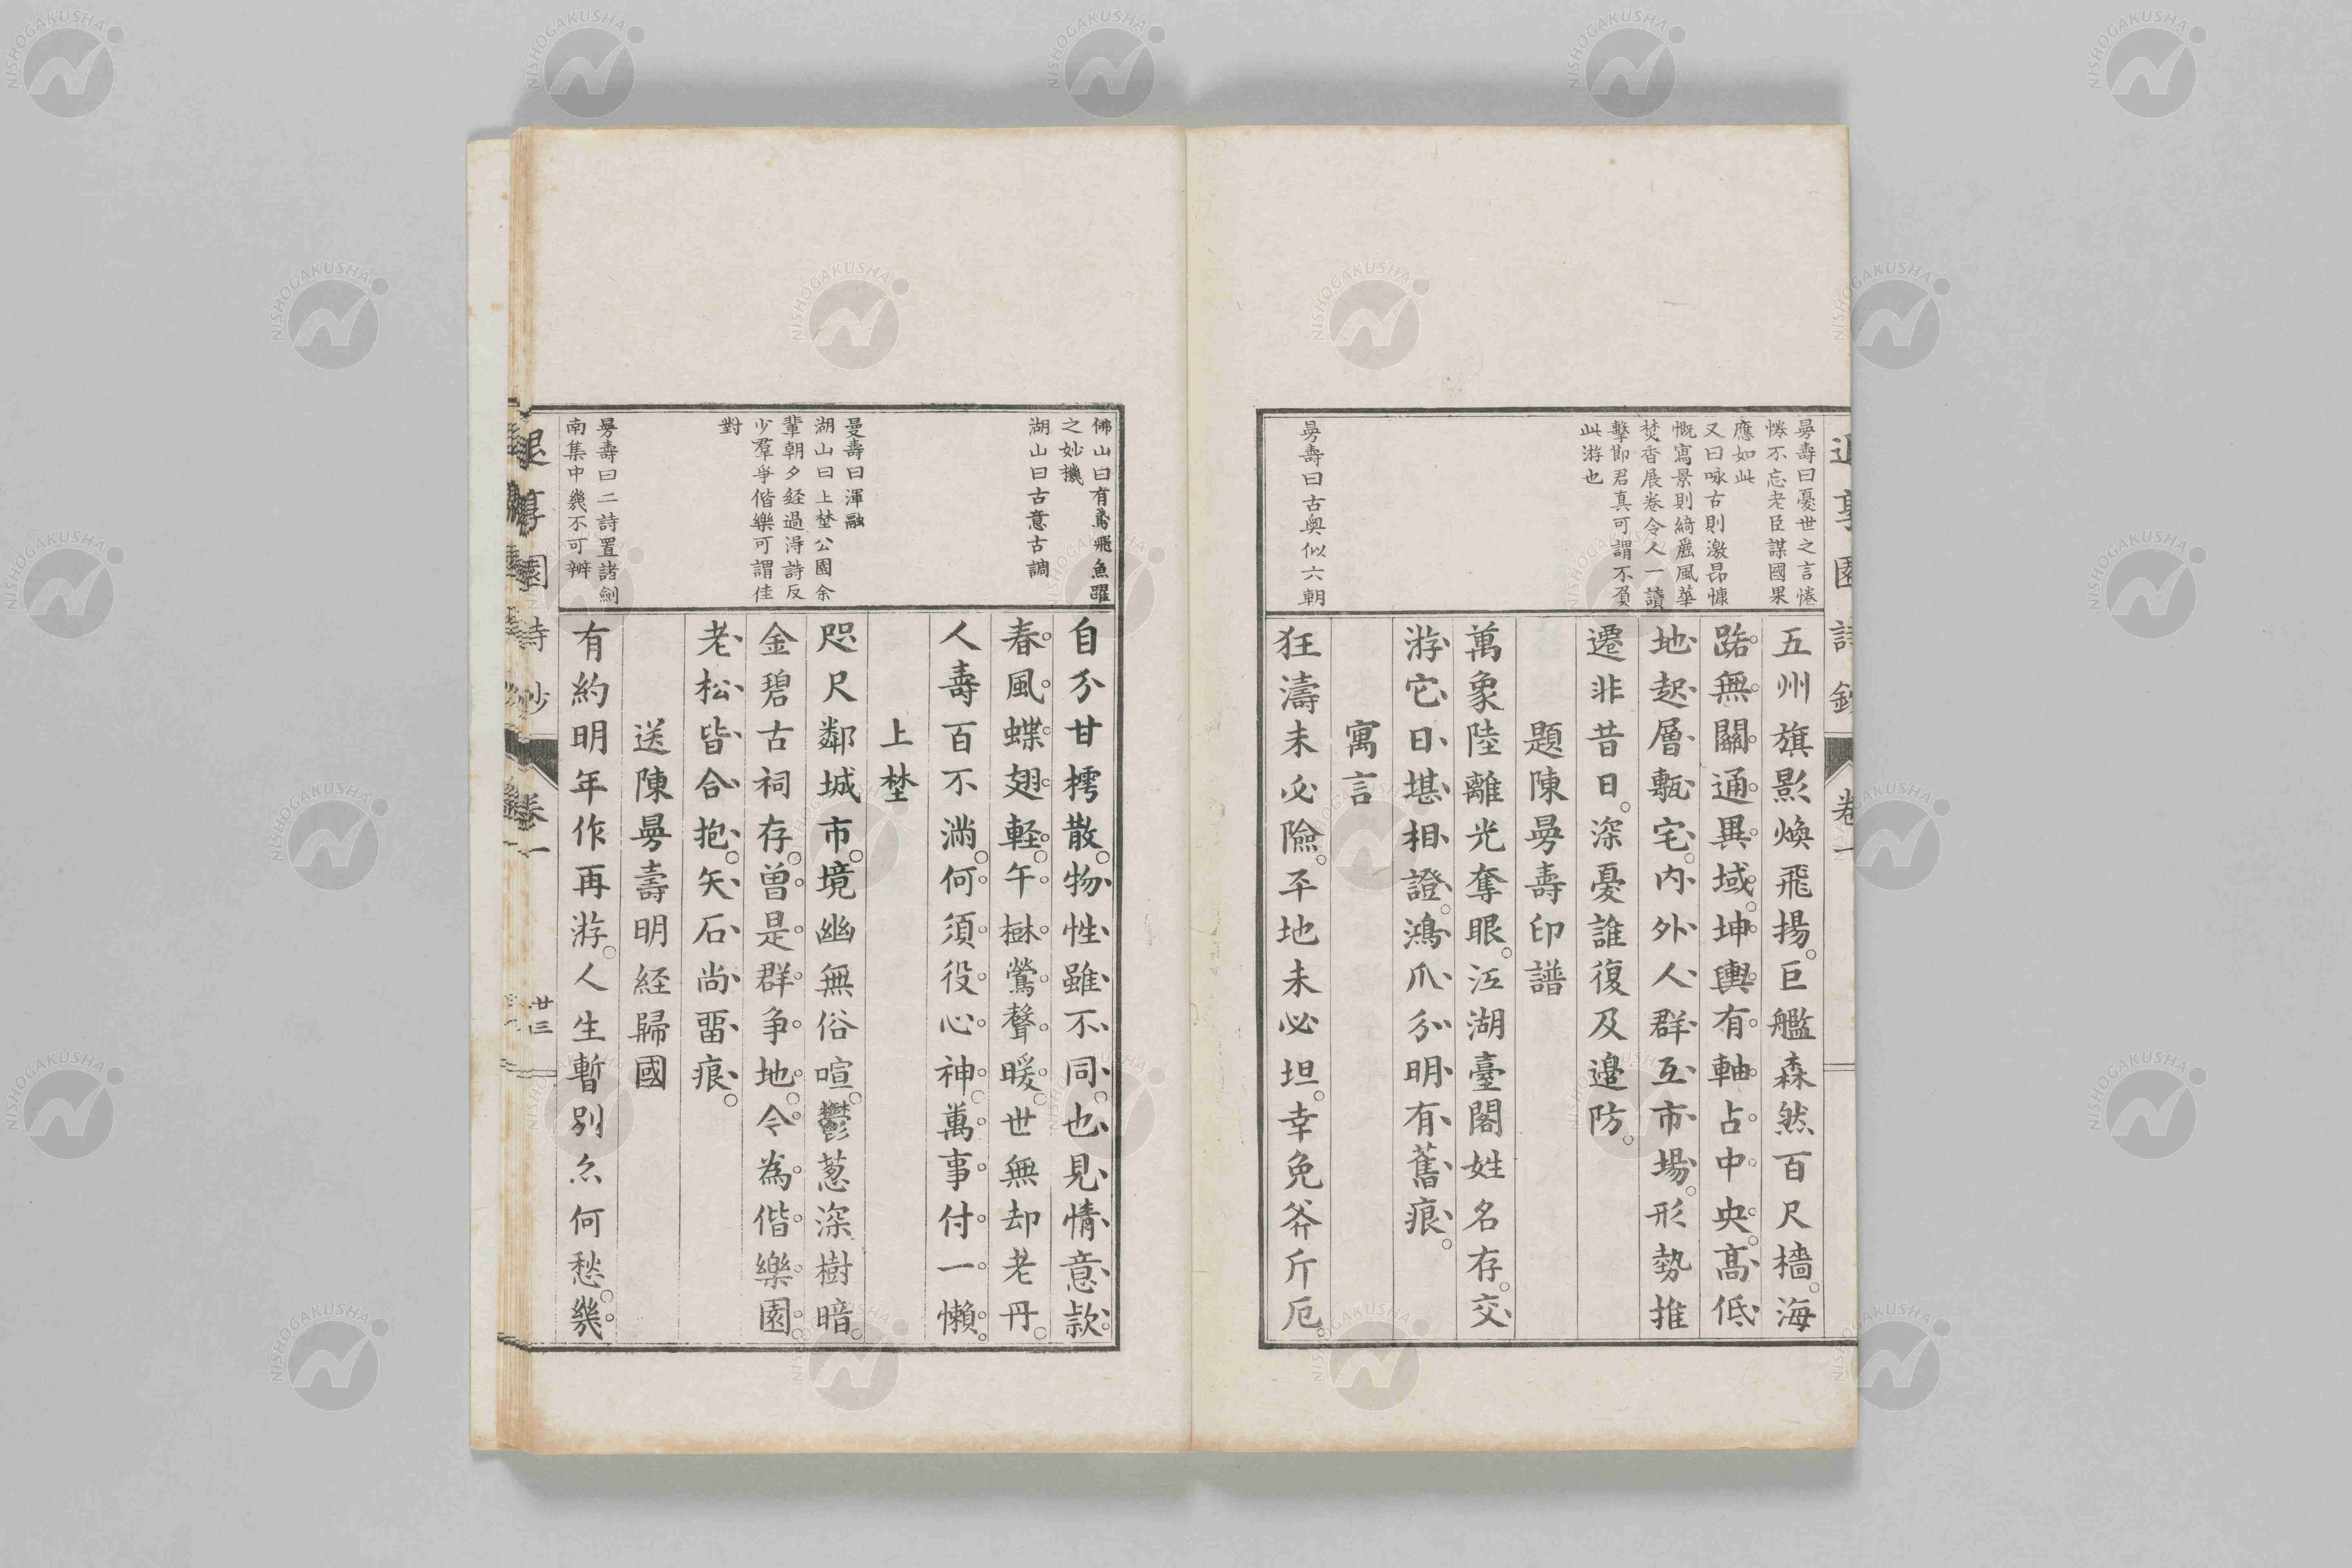 曼壽曰憂世之言惓
惓不忘老臣謀國果
應如此
又曰咏古則激昂慷
慨寫景則綺麗風華
焚香展卷令人一讀
擊節君真可謂不負
此游也
曼壽曰古奧似六朝
五州旗影煥飛揚。巨艦森然百尺檣。海
路無關通異域。坤輿有軸占中央。高低
地起層甎宅。內外人群互市場。形勢推
遷非昔日。深憂誰復及邊防。
題陳曼壽印譜
萬象陸離光奪眼。江湖臺閣姓名存。交
游它日堪相證。鴻爪分明有舊痕。
寓言
狂濤未必險。平地未必坦。幸免斧斤厄。
佛山曰有鳶飛魚躍
之妙機
湖山曰古意古調
曼壽曰渾融
湖山曰上埜公園余
輩朝夕経過得詩反
少羣爭偕樂可謂佳
對
曼壽曰二詩置諸劍
南集中幾不可辨
自分甘樗散。物性雖不同。也見情意款。
春風蝶翅軽。午樹鶯聲暖。世無却老丹。
人壽百不滿。何須役心神。萬事付一懶。
上埜
咫尺鄰城市。境幽無俗喧。鬱蔥深樹暗。
金碧古祠存。曾是群争地。令為偕樂園。
老松皆合抱。矢石尚畱痕。
送陳曼壽明経歸國
有約明年作再游。人生暫別亦何愁。幾
退享園詩鈔
卷一
廿三